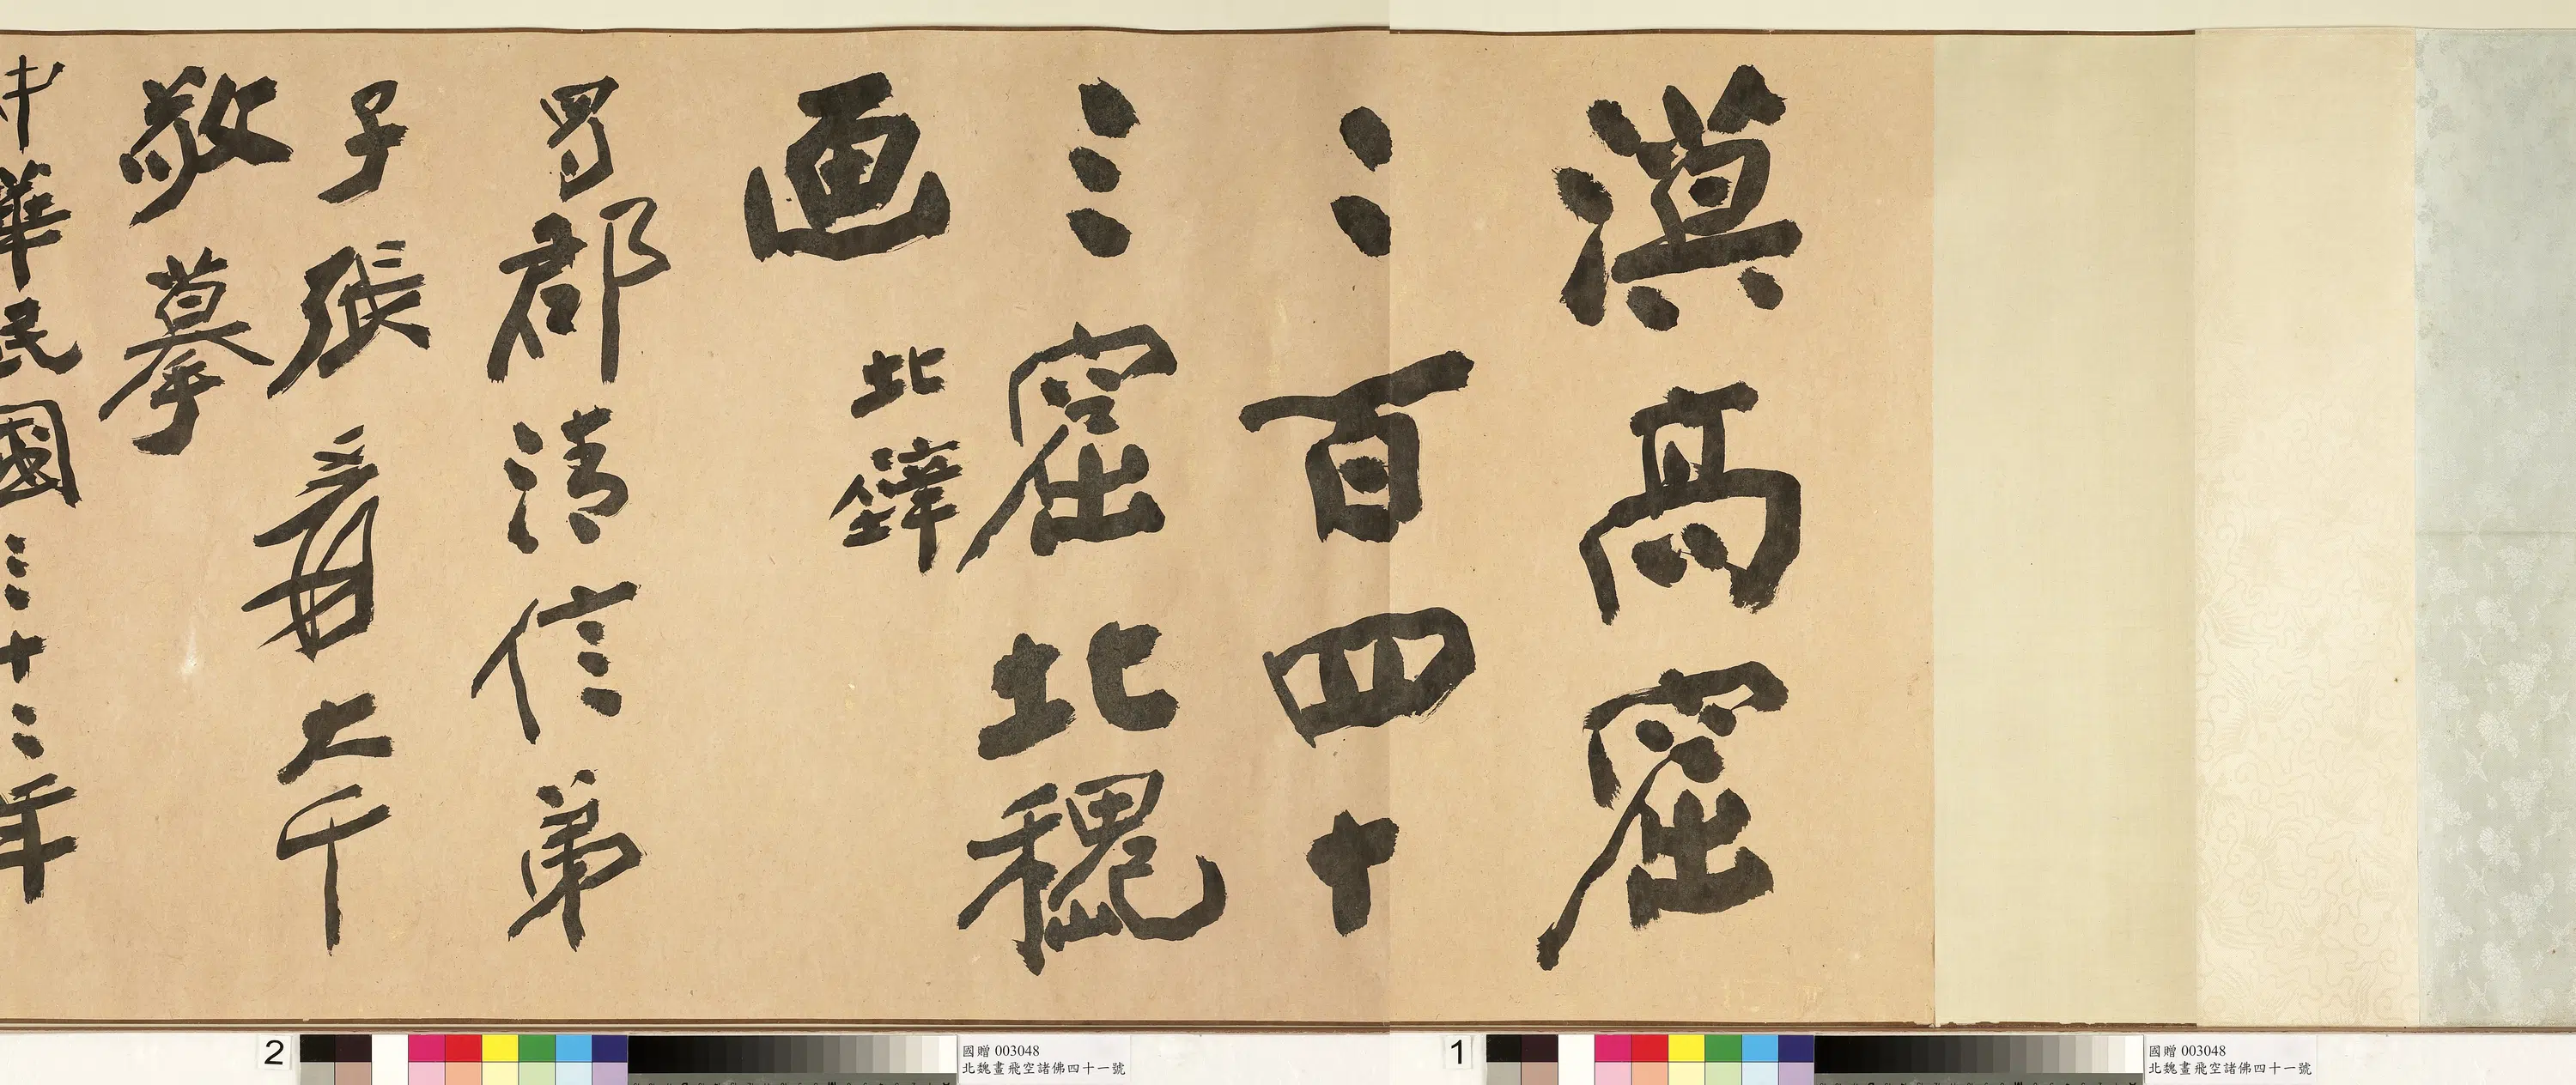 漠高窟
二百四十
三窟北魏
画 北壁
蜀郡清信弟
子張爰大千
敬摹
中華民國三十二年
2
國贈 003048
北魏畫飛空諸佛四十一號
1
國贈 003048
北魏畫飛空諸佛四十一號